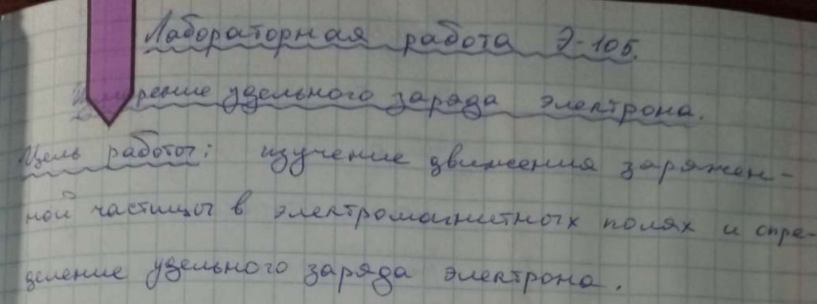 Лабораторная работа Э-105.
Измерение удельного заряда электрона.
Цель работы: изучение движения заряжен-
ной частицы в электромагнитных полях и опре-
деление удельного заряда электрона.